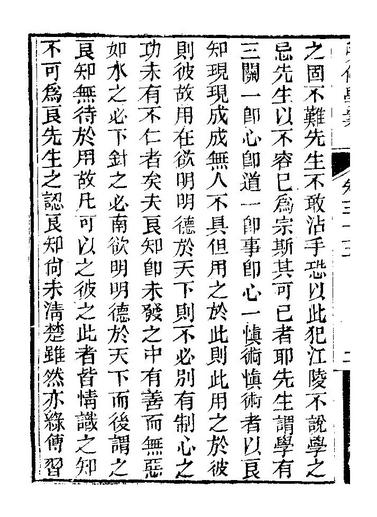 之固不難先生不敢沾手恐以此犯江陵不說學之
忌先生以不容已為宗斯其可已者耶先生謂學有
三關一卽心卽道一卽事卽心一愼術愼術者以良
知現現成成無人不具但用之於此則此用之於彼
則彼故用在欲明明德於天下則不必別有制心之
功未有不仁者矣夫良知卽未發之中有善而無惡
如水之必下針之必南欲明明德於天下而後謂之
良知無待於用故凡可以之彼之此者皆情識之知
不可為良先生之認良知尙未淸楚雖然亦緣傳習
卷三十五
二